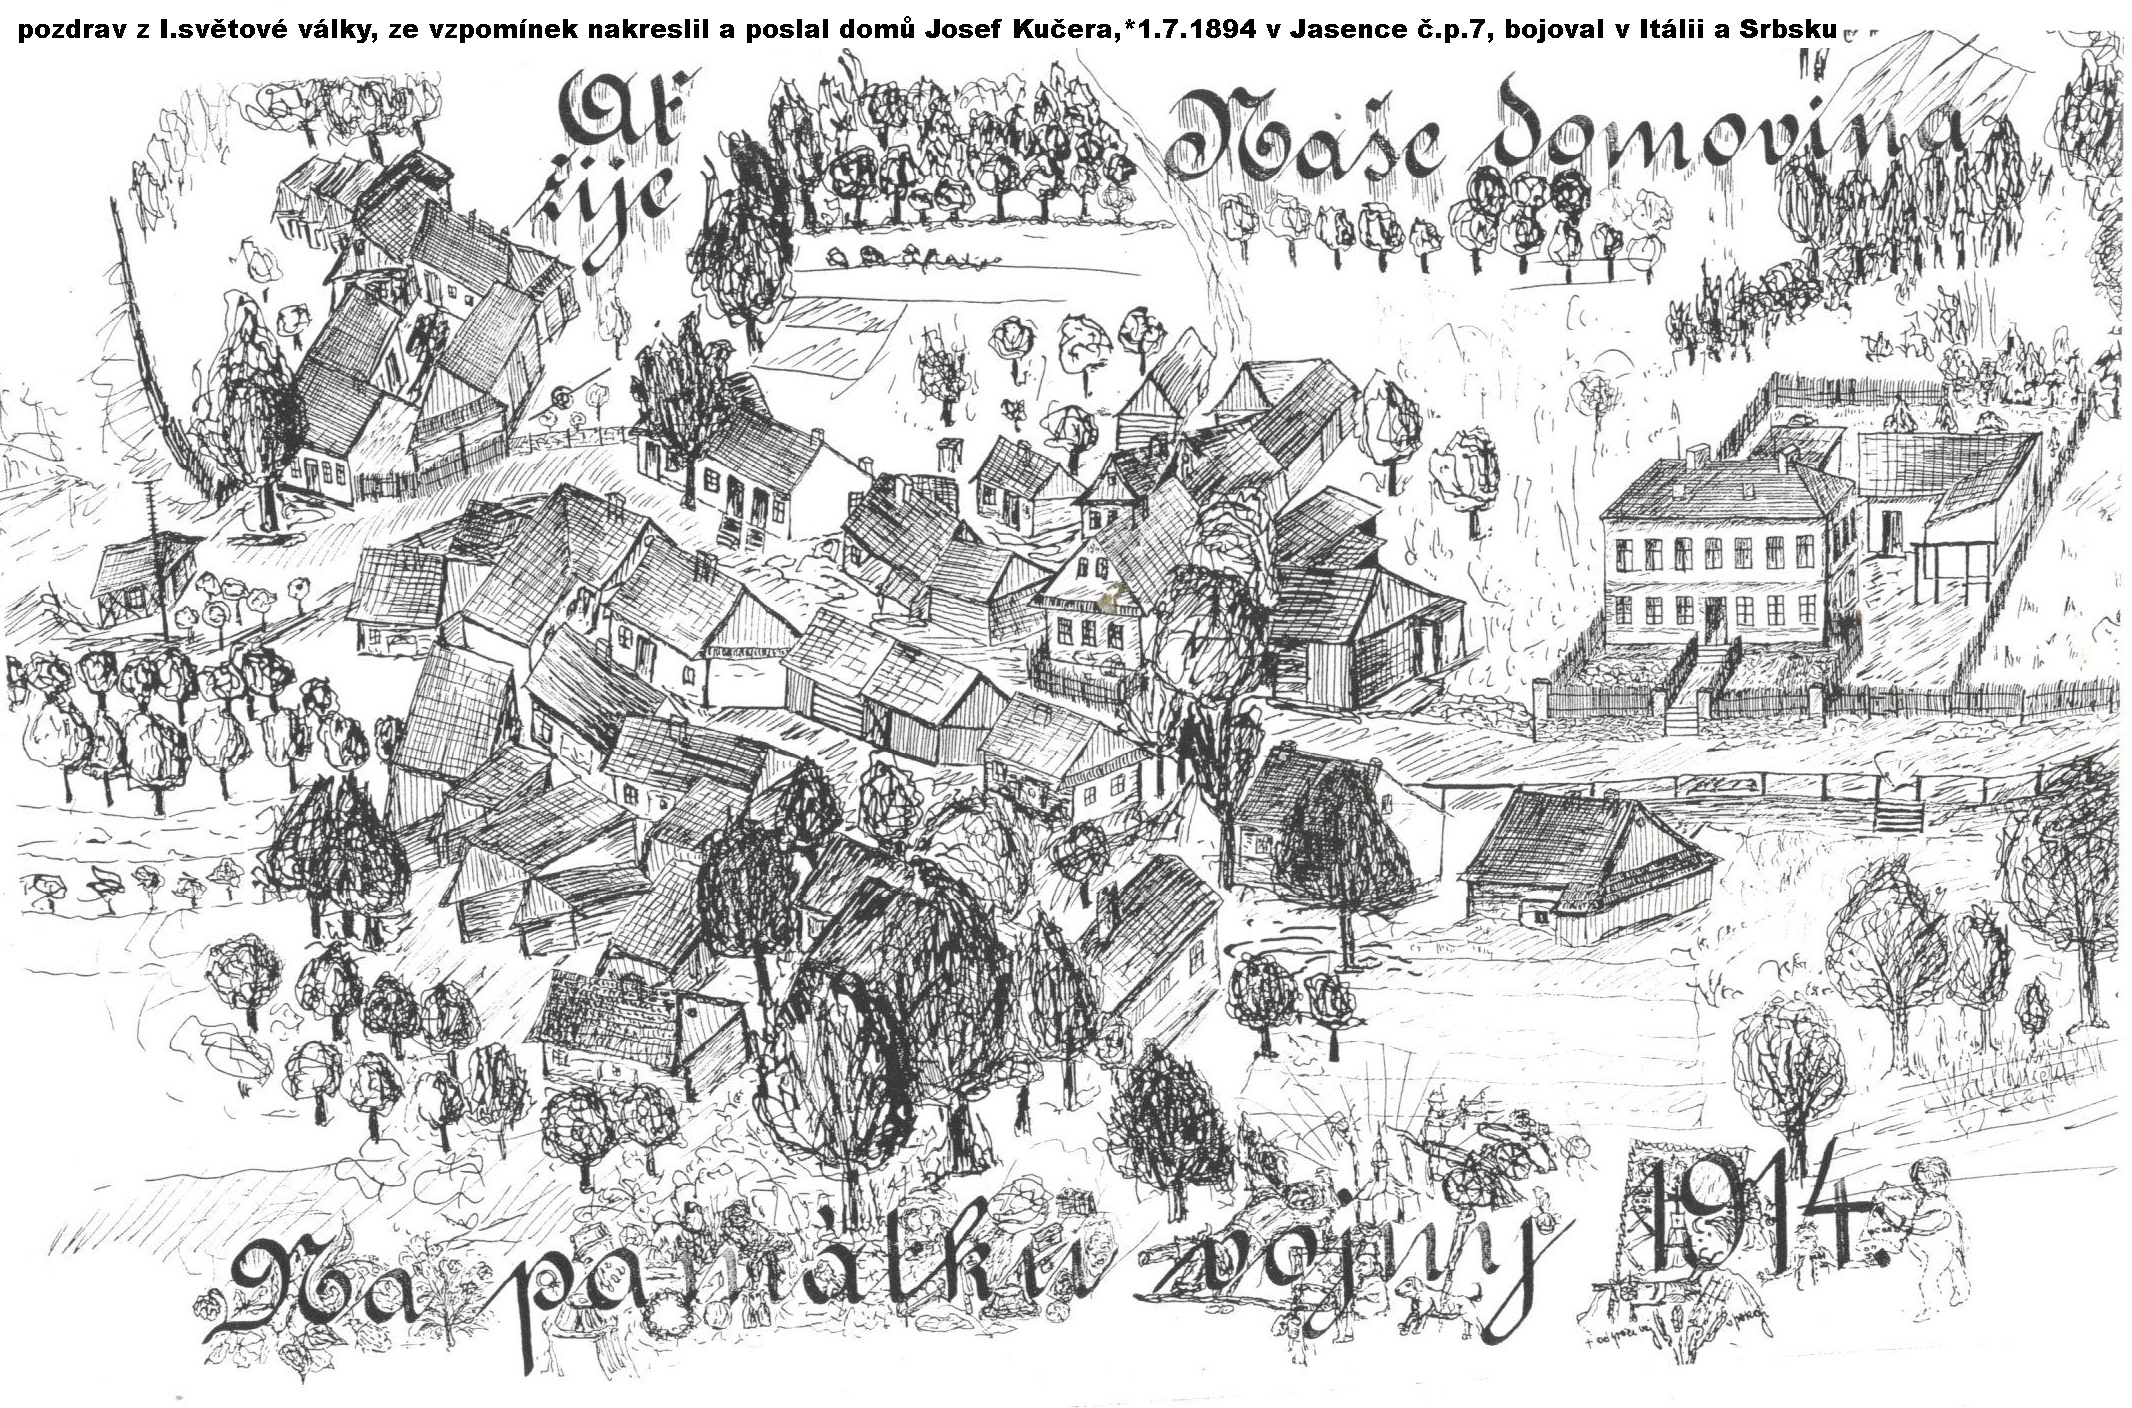 pozdrav z I.světové války, ze vzpomínek nakreslil a poslal domů Josef Kučera,*1.7.1894 v Jasence č.p.7, bojoval v Itálii a Srbsku
Ať
žije
Naše domovina
Na památku vojny 1914.